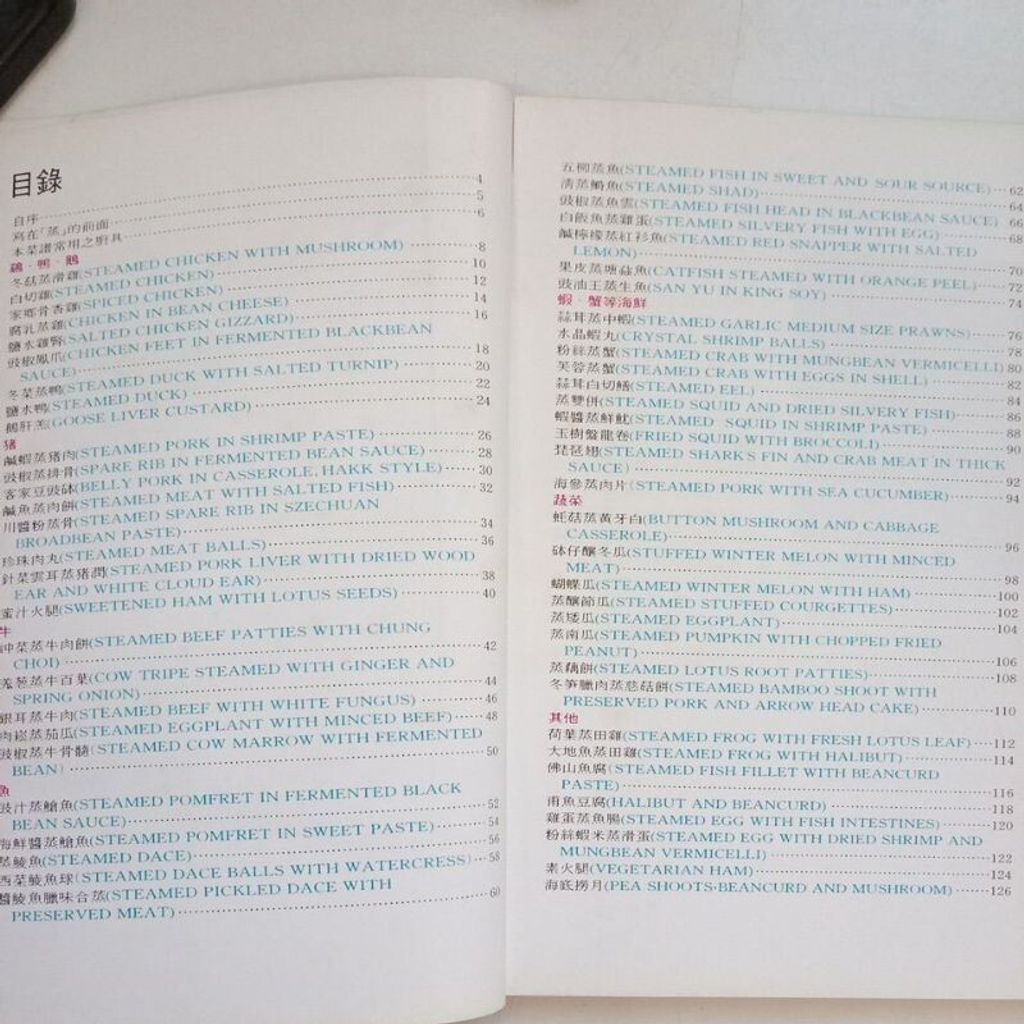 目錄
自序 4
寫在「蒸」的前面 5
本菜譜常用之厨具 6
鷄·鴨·鵝
冬菇蒸滑雞(STEAMED CHICKEN WITH MUSHROOM) 8
白切雞(STEAMED CHICKEN) 10
家鄉骨香雞(SPICED CHICKEN) 12
腐乳蒸雞(CHICKEN IN BEAN CHEESE) 14
鹽水雞腎(SALTED CHICKEN GIZZARD) 16
豉椒鳳爪(CHICKEN FEET IN FERMENTED BLACKBEAN
SAUCE) 18
冬菜蒸鴨(STEAMED DUCK WITH SALTED TURNIP) 20
鹽水鴨(STEAMED DUCK) 22
鵝肝羔(GOOSE LIVER CUSTARD) 24
猪
鹹蝦蒸猪肉(STEAMED PORK IN SHRIMP PASTE) 26
豉椒蒸排骨(SPARE RIB IN FERMENTED BEAN SAUCE) 28
客家豆豉砵(BELLY PORK IN CASSEROLE, HAKK STYLE) 30
鹹魚蒸肉餅(STEAMED MEAT WITH SALTED FISH) 32
川醬粉蒸骨(STEAMED SPARE RIB IN SZECHUAN
BROADBEAN PASTE) 34
珍珠肉丸(STEAMED MEAT BALLS) 36
針菜雲耳蒸猪潤(STEAMED PORK LIVER WITH DRIED WOOD
EAR AND WHITE CLOUD EAR) 38
蜜汁火腿(SWEETENED HAM WITH LOTUS SEEDS) 40
牛
冲菜蒸牛肉餅(STEAMED BEEF PATTIES WITH CHUNG
CHOI) 42
羗葱蒸牛百葉(COW TRIPE STEAMED WITH GINGER AND
SPRING ONION) 44
銀耳蒸牛肉(STEAMED BEEF WITH WHITE FUNGUS) 46
肉崧蒸茄瓜(STEAMED EGGPLANT WITH MINCED BEEF) 48
豉椒蒸牛骨髓(STEAMED COW MARROW WITH FERMENTED
BEAN) 50
魚
豉汁蒸鯧魚(STEAMED POMFRET IN FERMENTED BLACK
BEAN SAUCE) 52
海鮮醬蒸鯧魚(STEAMED POMFRET IN SWEET PASTE) 54
蒸鯪魚(STEAMED DACE) 56
西菜鯪魚球(STEAMED DACE BALLS WITH WATERCRESS) 58
醬鯪魚臘味合蒸(STEAMED PICKLED DACE WITH
PRESERVED MEAT) 60
五柳蒸魚(STEAMED FISH IN SWEET AND SOUR SOURCE) 62
清蒸鰣魚(STEAMED SHAD) 64
豉椒蒸魚雲(STEAMED FISH HEAD IN BLACKBEAN SAUCE) 66
白飯魚蒸雞蛋(STEAMED SILVERY FISH WITH EGG) 68
鹹檸檬蒸紅衫魚(STEAMED RED SNAPPER WITH SALTED
LEMON) 70
果皮蒸塘蝨魚(CATFISH STEAMED WITH ORANGE PEEL) 72
豉油王蒸生魚(SAN YU IN KING SOY) 74
蝦·蟹等海鮮
蒜茸蒸中蝦(STEAMED GARLIC MEDIUM SIZE PRAWNS) 76
水晶蝦丸(CRYSTAL SHRIMP BALLS) 78
粉絲蒸蟹(STEAMED CRAB WITH MUNGBEAN VERMICELLI) 80
芙蓉蒸蟹(STEAMED CRAB WITH EGGS IN SHELL) 82
蒜茸白切鱔(STEAMED EEL) 84
蒸雙併(STEAMED SQUID AND DRIED SILVERY FISH) 86
蝦醬蒸鮮魷(STEAMED SQUID IN SHRIMP PASTE) 88
玉樹盤龍卷(FRIED SQUID WITH BROCCOLI) 90
琵琶翅(STEAMED SHARK'S FIN AND CRAB MEAT IN THICK
SAUCE) 92
海參蒸肉片(STEAMED PORK WITH SEA CUCUMBER) 94
蔬菜
蚝菇蒸黃牙白(BUTTON MUSHROOM AND CABBAGE
CASSEROLE) 96
砵仔釀冬瓜(STUFFED WINTER MELON WITH MINCED
MEAT) 98
蝴蝶瓜(STEAMED WINTER MELON WITH HAM) 100
蒸釀節瓜(STEAMED STUFFED COURGETTES) 102
蒸矮瓜(STEAMED EGGPLANT) 104
蒸南瓜(STEAMED PUMPKIN WITH CHOPPED FRIED
PEANUT) 106
蒸藕餅(STEAMED LOTUS ROOT PATTIES) 108
冬笋臘肉蒸慈菇餅(STEAMED BAMBOO SHOOT WITH
PRESERVED PORK AND ARROW HEAD CAKE) 110
其他
荷葉蒸田雞(STEAMED FROG WITH FRESH LOTUS LEAF) 112
大地魚蒸田雞(STEAMED FROG WITH HALIBUT) 114
佛山魚腐(STEAMED FISH FILLET WITH BEANCURD
PASTE) 116
甫魚豆腐(HALIBUT AND BEANCURD) 118
雞蛋蒸魚腸(STEAMED EGG WITH FISH INTESTINES) 120
粉絲蝦米蒸滑蛋(STEAMED EGG WITH DRIED SHRIMP AND
MUNGBEAN VERMICELLI) 122
素火腿(VEGETARIAN HAM) 124
海底撈月(PEA SHOOTS·BEANCURD AND MUSHROOM) 126